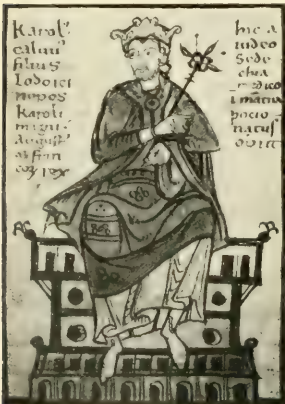 Karol'
caluu'
filius
Lodoici
nepos
Karoli
magni
august'
&
rex
hic a
iudeo
Sede
chia
medico
pocio
natus'
obiit